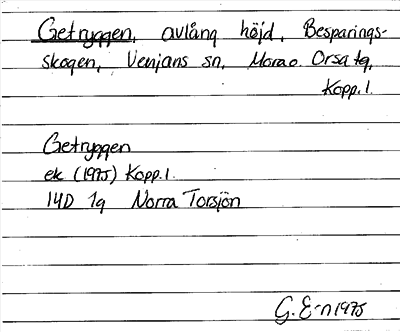 Getryggen, avlång höjd, Besparings-
skogen, Venjans sn, Mora o. Orsa tg,
Kopp. l.
Getryggen
ek (1975) Kopp. l.
14D 1g Norra Torsjön
G. E-n 1975